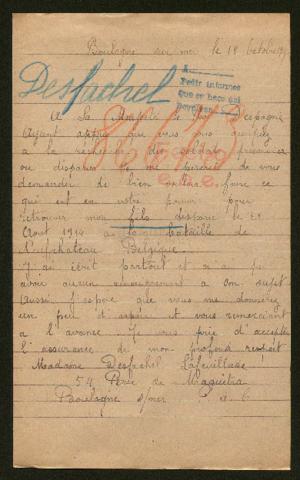 Boulogne sur mer le 18 Octobre
Desfachel
A
Pedir informes
que se hace del
A Sa Majesté le Roi d'Espagne
Ayant appris que vous vous
à la recherche des soldats prisonniers
ou disparus je me permets de vous
demander de bien vouloir faire ce
qui est en votre pouvoir pour
retrouver mon fils disparu le 22
Aout 1914 à la bataille de
Neufchateau Belgique.
J'ai écrit partout et n'ai pu
avoir aucun renseignement à son sujet
aussi j'espère que vous me donnerez
un peu d'espoir et vous remerciant
à l'avance Je vous prie d'accepter
l'assurance de mon profond respect
Madame Desfachel Lafeuillade
54 Rue de
Boulogne s/mer P. d. C.